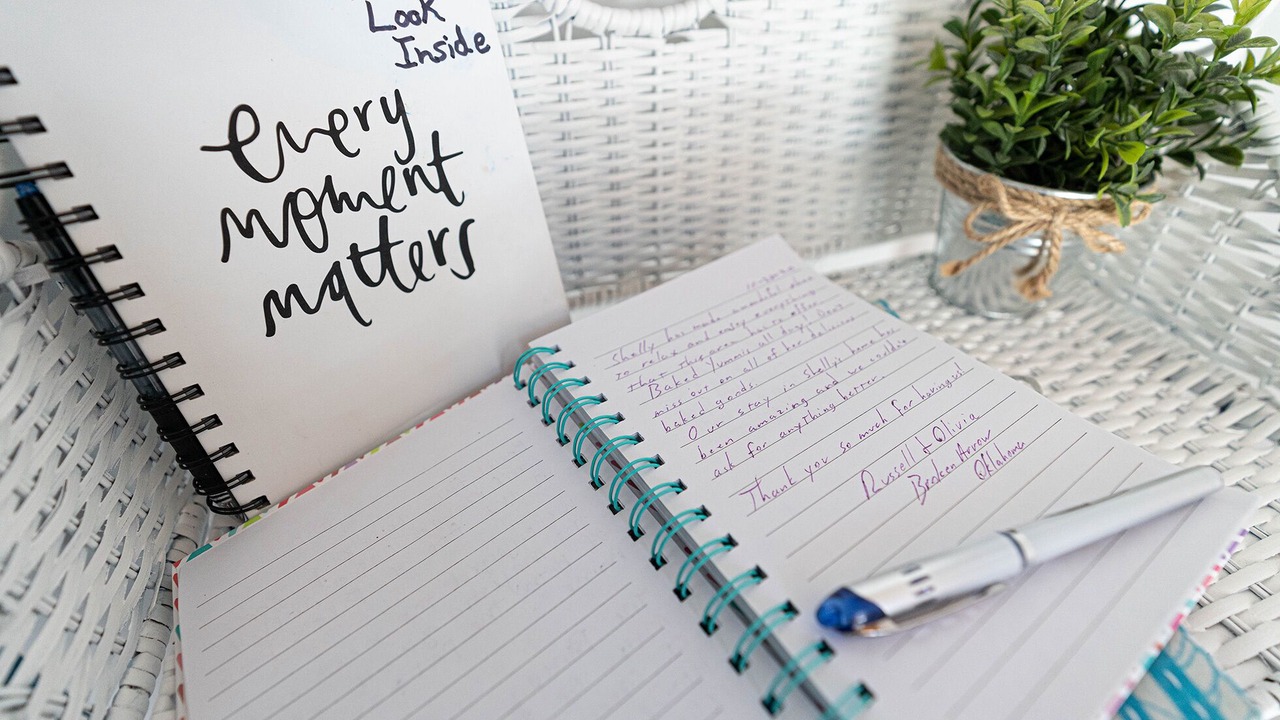 Look
Inside
every
moment
matters
Shelly has made wonderful
to relax and enjoy everything
that this area has to offer.
Baked Yummis all day! Don't
miss out on all of her delicious
baked goods.
Our stay in Shellys home has
been amazing and we couldn't
ask for anything better.
Thank you so much for having us!
Russell + Olivia
Broken Arrow
Oklahoma